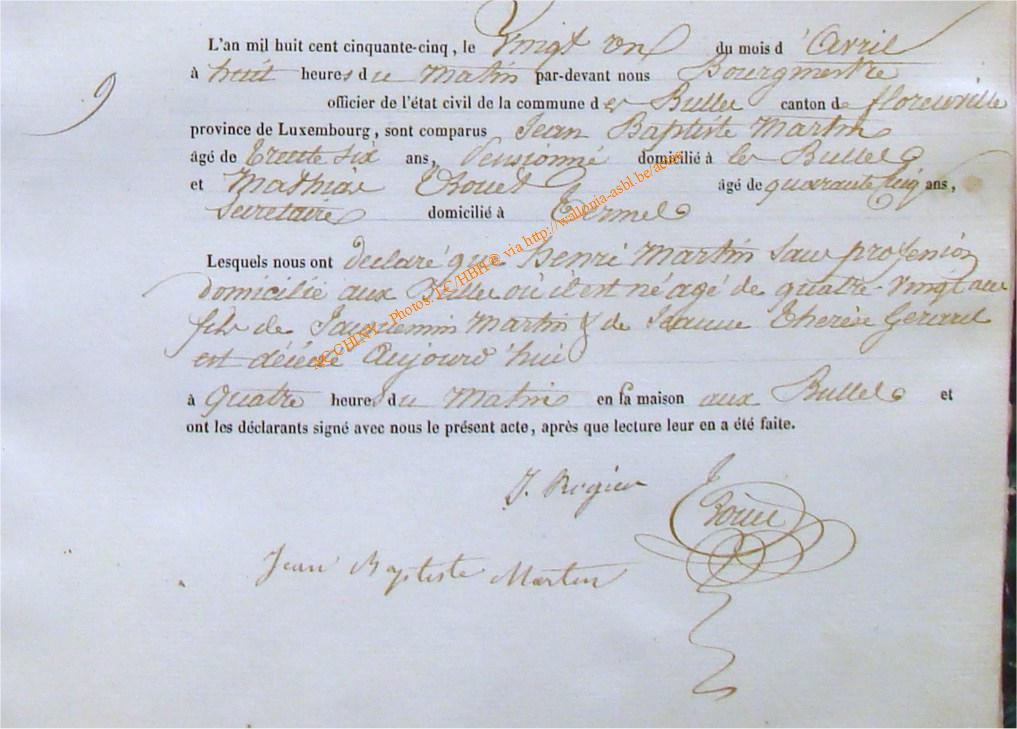 L'an mil huit cent cinquante-cinq, le Vingt un du mois d'Avril
9 à huit heures du Matin par-devant nous Bourgmestre
officier de l'état civil de la commune des Bulles canton de florenville
province de Luxembourg, sont comparus Jean Baptiste Martin
âgé de Trente Six ans, Pensionné domicilié à les Bulles
et Mathias âgé de quarante Cinq ans,
Secretaire domicilié à Termes
Lesquels nous ont declaré que henri Martin Sans profession
domicilié aux Bulles où il est né agé de quatre-Vingt ans
fils de Jacquemin Martin & de Jeanne Therèse Gerard
est décédé Aujourd'hui
à Quatre heures du Matin en sa maison aux Bulles et
ont les déclarants signé avec nous le présent acte, après que lecture leur en a été faite.
J. Rogier
Jean Baptiste Martin
ACCHINY - Photos: TC/HBH® via http://wallonia-asbl.be/actes